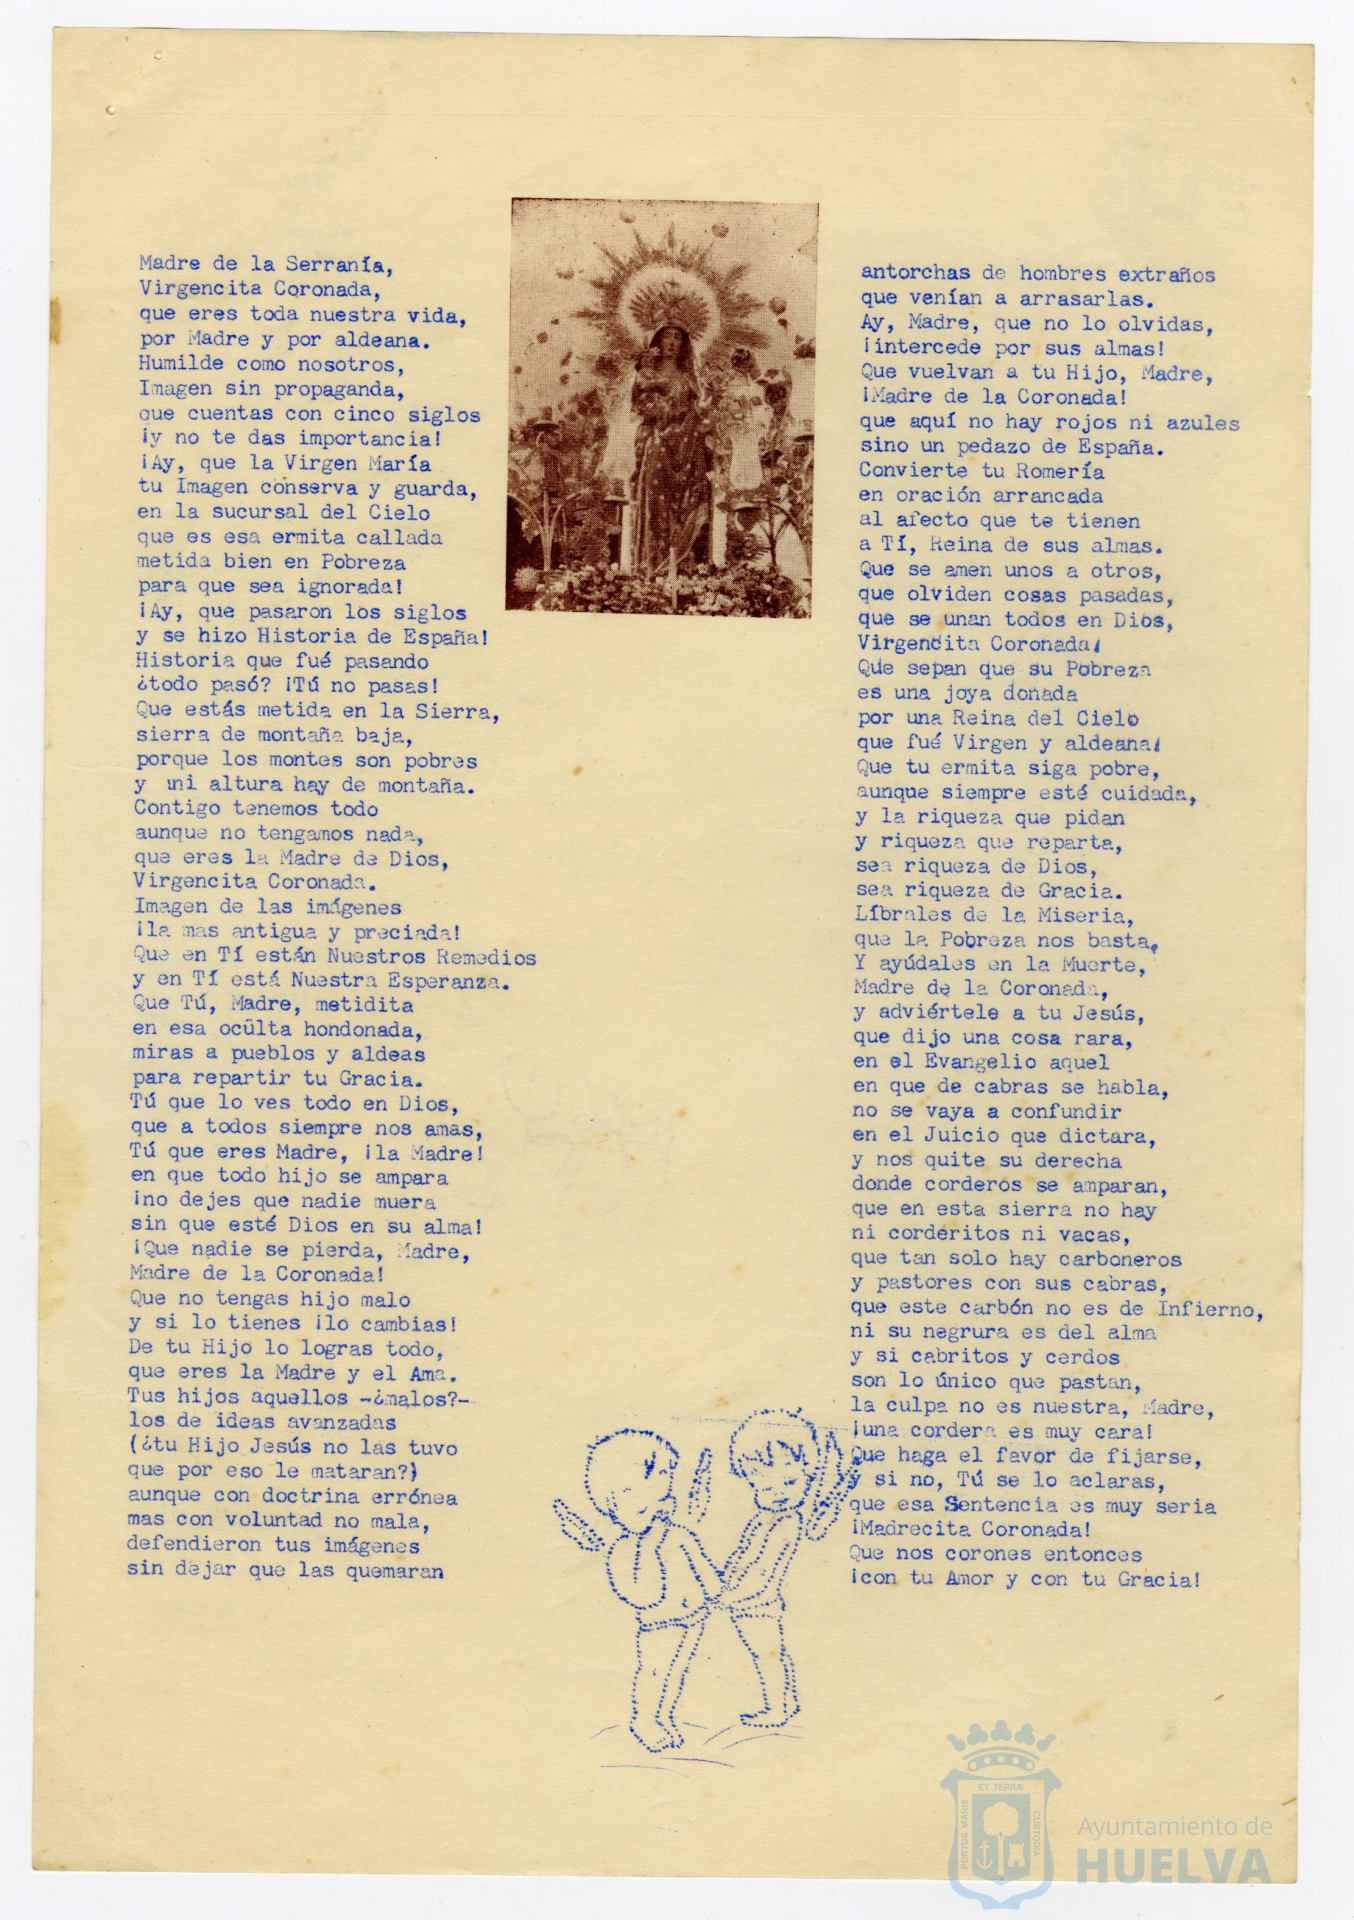 Madre de la Serranía,
Virgencita Coronada,
que eres toda nuestra vida,
por Madre y por aldeana.
Humilde como nosotros,
Imagen sin propaganda,
que cuentas con cinco siglos
¡y no te das importancia!
¡Ay, que la Virgen María
tu Imagen conserva y guarda,
en la sucursal del Cielo
que es esa ermita callada
metida bien en Pobreza
para que sea ignorada!
¡Ay, que pasaron los siglos
y se hizo Historia de España!
Historia que fué pasando
¿todo pasó? ¡Tú no pasas!
Que estás metida en la Sierra,
sierra de montaña baja,
porque los montes son pobres
y ni altura hay de montaña.
Contigo tenemos todo
aunque no tengamos nada,
que eres la Madre de Dios,
Virgencita Coronada.
Imagen de las imágenes
¡la mas antigua y preciada!
Que en Tí están Nuestros Remedios
y en Tí está Nuestra Esperanza.
Que Tú, Madre, metidita
en esa oculta hondonada,
miras a pueblos y aldeas
para repartir tu Gracia.
Tú que lo ves todo en Dios,
que a todos siempre nos amas,
Tú que eres Madre, ¡la Madre!
en que todo hijo se ampara
¡no dejes que nadie muera
sin que esté Dios en su alma!
¡Que nadie se pierda, Madre,
Madre de la Coronada!
Que no tengas hijo malo
y si lo tienes ¡lo cambias!
De tu Hijo lo logras todo,
que eres la Madre y el Ama.
Tus hijos aquellos -¿malos?-
los de ideas avanzadas
(¿tu Hijo Jesús no las tuvo
que por eso le mataran?)
aunque con doctrina errónea
mas con voluntad no mala,
defendieron tus imágenes
sin dejar que las quemaran
antorchas de hombres extraños
que venían a arrasarlas.
Ay, Madre, que no lo olvidas,
¡intercede por sus almas!
Que vuelvan a tu Hijo, Madre,
¡Madre de la Coronada!
que aquí no hay rojos ni azules
sino un pedazo de España.
Convierte tu Romería
en oración arrancada
al afecto que te tienen
a Tí, Reina de sus almas.
Que se amen unos a otros,
que olviden cosas pasadas,
que se unan todos en Dios,
Virgencita Coronada!
Que sepan que su Pobreza
es una joya donada
por una Reina del Cielo
que fué Virgen y aldeana!
Que tu ermita siga pobre,
aunque siempre esté cuidada,
y la riqueza que pidan
y riqueza que reparta,
sea riqueza de Dios,
sea riqueza de Gracia.
Líbrales de la Miseria,
que la Pobreza nos basta.
Y ayúdales en la Muerte,
Madre de la Coronada,
y adviértele a tu Jesús,
que dijo una cosa rara,
en el Evangelio aquel
en que de cabras se habla,
no se vaya a confundir
en el Juicio que dictara,
y nos quite su derecha
donde corderos se amparan,
que en esta sierra no hay
ni corderitos ni vacas,
que tan solo hay carboneros
y pastores con sus cabras,
que este carbón no es de Infierno,
ni su negrura es del alma
y si cabritos y cerdos
son lo único que pastan,
la culpa no es nuestra, Madre,
¡una cordera es muy cara!
Que haga el favor de fijarse,
y si no, Tú se lo aclaras,
que esa Sentencia es muy seria
¡Madrecita Coronada!
Que nos corones entonces
¡con tu Amor y con tu Gracia!
PORTUS MARIS ET TERRÆ CUSTODIA
Ayuntamiento de
HUELVA